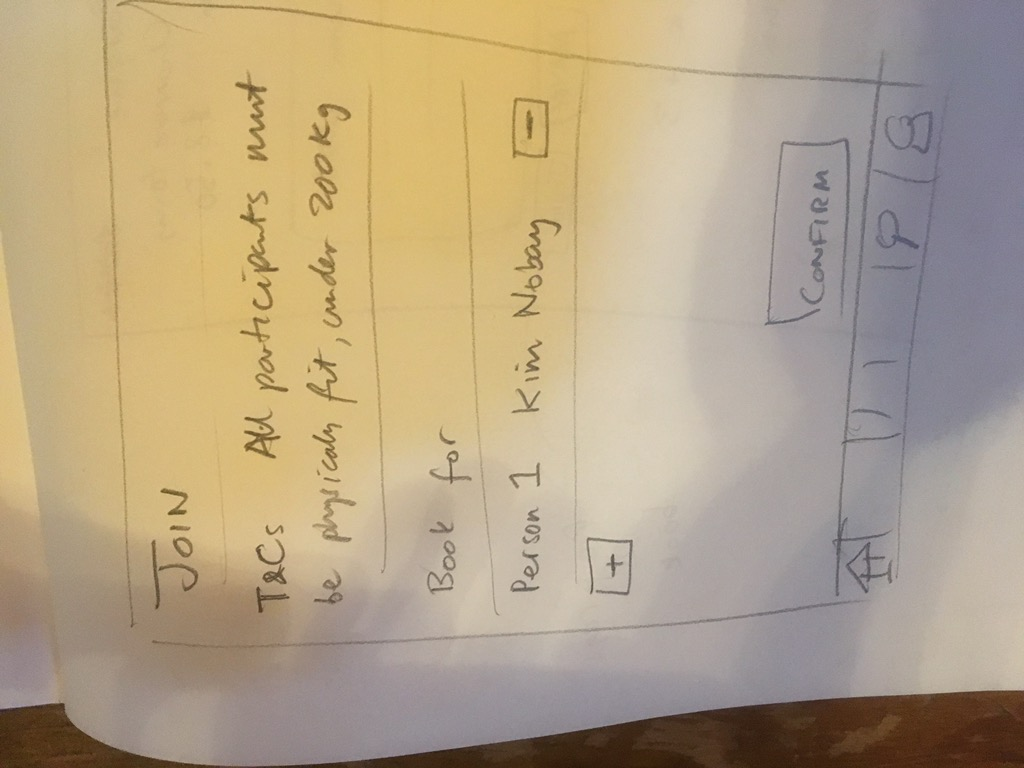 JOIN
T&Cs All participants must
be physicaly fit, under 200kg
Book for
Person 1 Kim Nobay -
+
CONFIRM